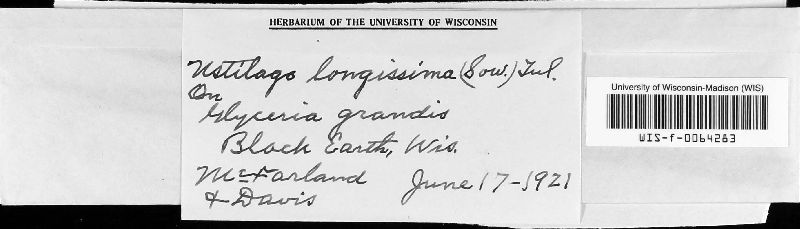 HERBARIUM OF THE UNIVERSITY OF WISCONSIN
Ustilago longissima (Sow.) Tul.
On
Glyceria grandis
Black Earth, Wis.
McFarland June 17-1921
& Davis
University of Wisconsin-Madison (WIS)
WIS-f-0064283